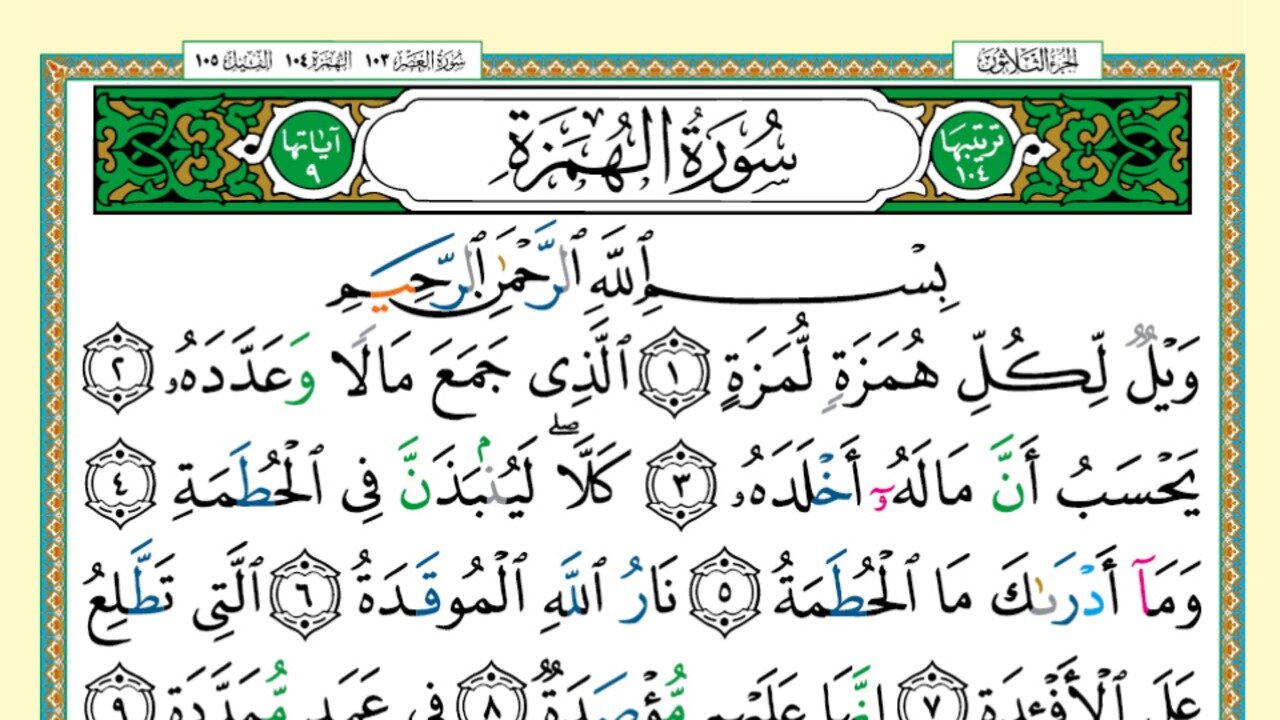 الجزء الثلاثون
سورة العصر ١٠٣ الهمزة ١٠٤ الفيل ١٠٥
ترتيبها ١٠٤
سُورَةُ الهُمَزَةِ
آياتها ٩
بِسْمِ ٱللَّهِ ٱلرَّحْمَٰنِ ٱلرَّحِيمِ
وَيْلٌ لِّكُلِّ هُمَزَةٍ لُّمَزَةٍ ١ ٱلَّذِى جَمَعَ مَالًا وَعَدَّدَهُۥ ٢
يَحْسَبُ أَنَّ مَالَهُۥٓ أَخْلَدَهُۥ ٣ كَلَّا ۖ لَيُنۢبَذَنَّ فِى ٱلْحُطَمَةِ ٤
وَمَآ أَدْرَىٰكَ مَا ٱلْحُطَمَةُ ٥ نَارُ ٱللَّهِ ٱلْمُوقَدَةُ ٦ ٱلَّتِى تَطَّلِعُ
عَلَى ٱلْأَفْـِٔدَةِ ٧ إِنَّهَا عَلَيْهِم مُّؤْصَدَةٌ ٨ فِى عَمَدٍ مُّمَدَّدَةٍ ٩